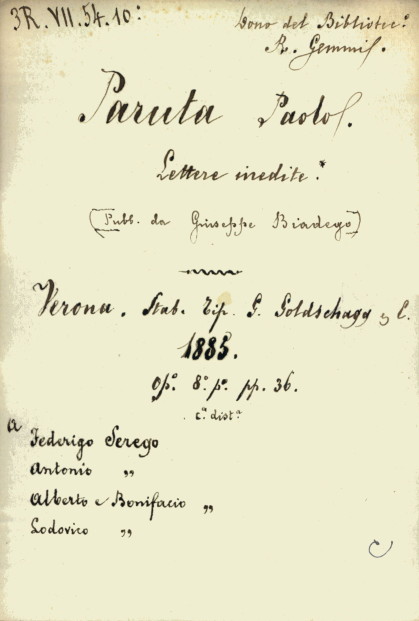 3R.VII.54.10:
Dono del Bibliotec.º
R. Gemmis.
Paruta Paolo.
Lettere inedite.*
(Pubb. da Giuseppe Biadego)
Verona. Stab. Tip. G. Goldschagg & C.
1885.
Opº. 8º. pº. pp. 36.
cª distª
a
Federigo Serego
Antonio „
Alberto e Bonifacio „
Lodovico „
C